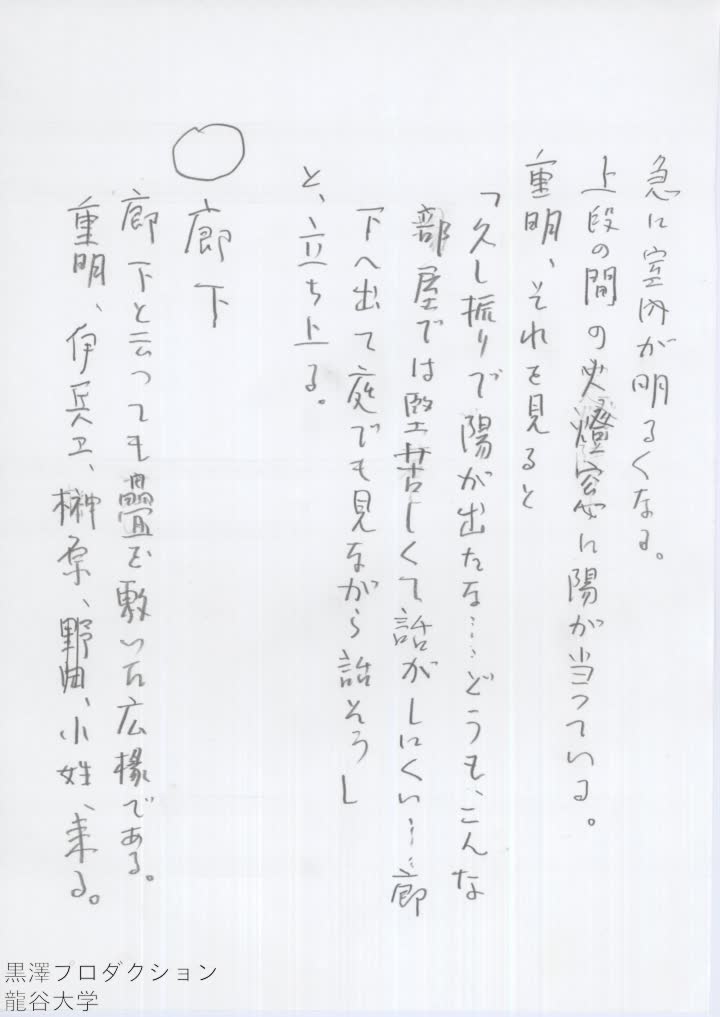 急に室内が明るくなる。
上段の間の火燈窓に陽が当っている。
重明、それを見ると
「久し振りで陽が出たな……どうも、こんな
部屋では堅苦しくて話がしにくい……廊
下へ出て庭でも見ながら話そう」
と、立ち上る。
○ 廊下
廊下と云っても畳を敷いた広椽である。
重明、伊兵ヱ、榊原、野田、小姓、来る。
黒澤プロダクション
龍谷大学